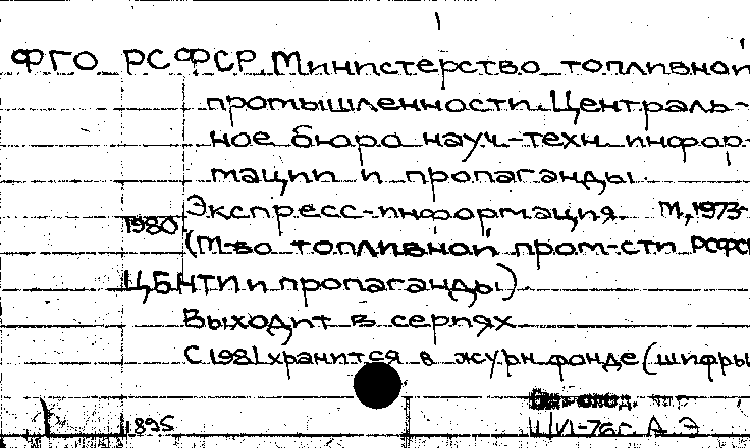 ФГО РСФСР. Министерство топливной
промышленности. Централь-
ное бюро науч.-техн. инфор-
мации и пропаганды.
Экспресс-информация. М., 1973-
1980
(М-во топливной пром-сти РСФСР
ЦБНТИ и пропаганды)
Выходит в сериях
С 1981 хранится в журн. фонде (шифры
1895